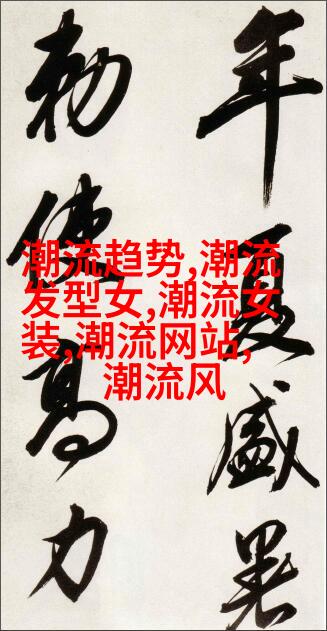 潮流趋势,潮流
发型女,潮流女
装,潮流网站,
潮流风
年夏盛暑
勅使高力